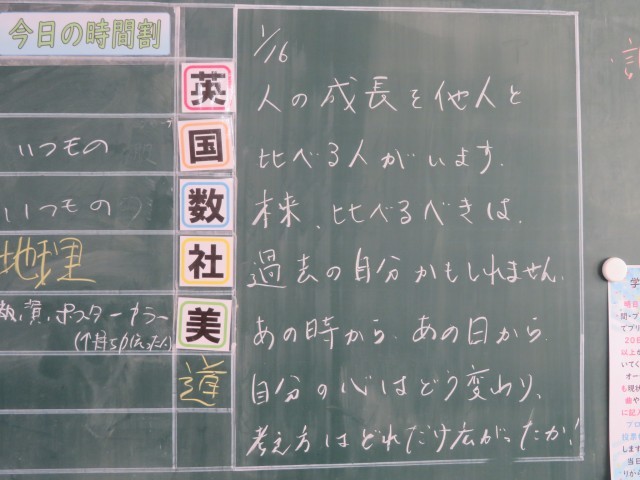 今日の時間割
英
いつもの 国
いつもの 数
地理 社
教、資、ポスターカラー 美
道
1/16
人の成長を他人と
比べる人がいます。
本来、比べるべきは、
過去の自分かもしれません。
あの時から、あの日から、
自分の心はどう変わり、
考え方はどれだけ広がったか!